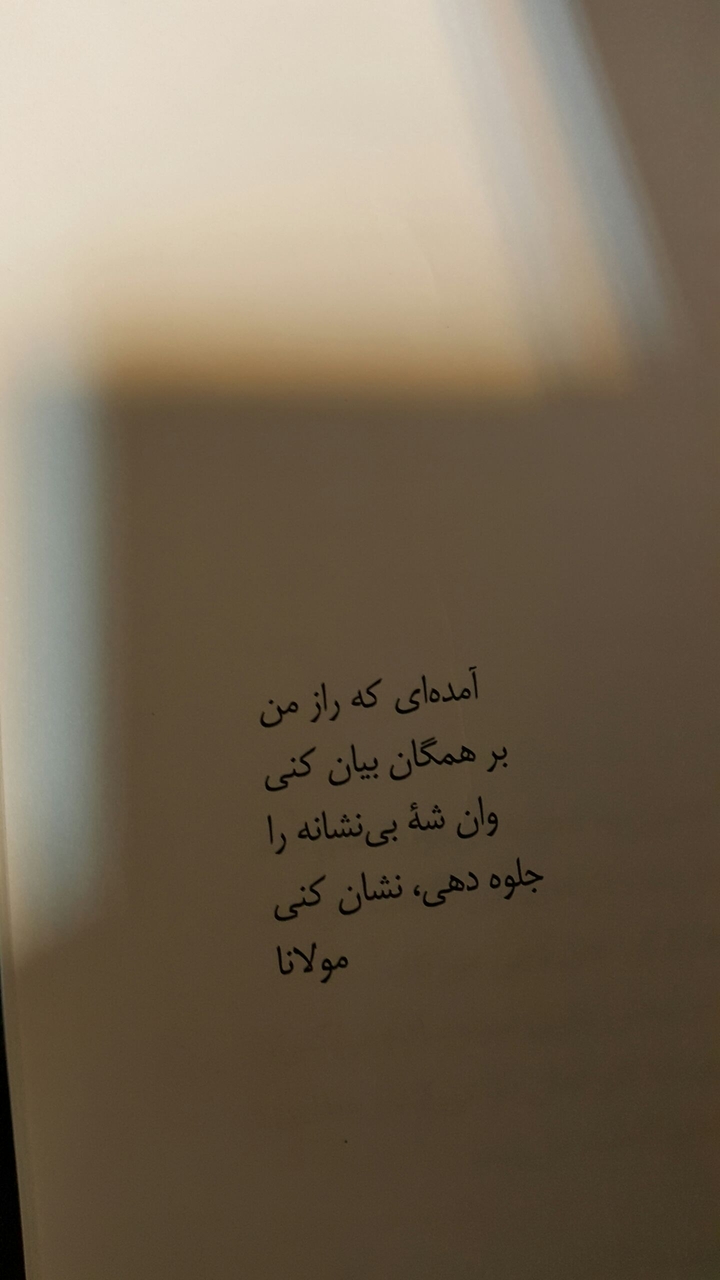 آمده‌ای که راز من
بر همگان بیان کنی
وان شهٔ بی‌نشانه را
جلوه دهی، نشان کنی
مولانا